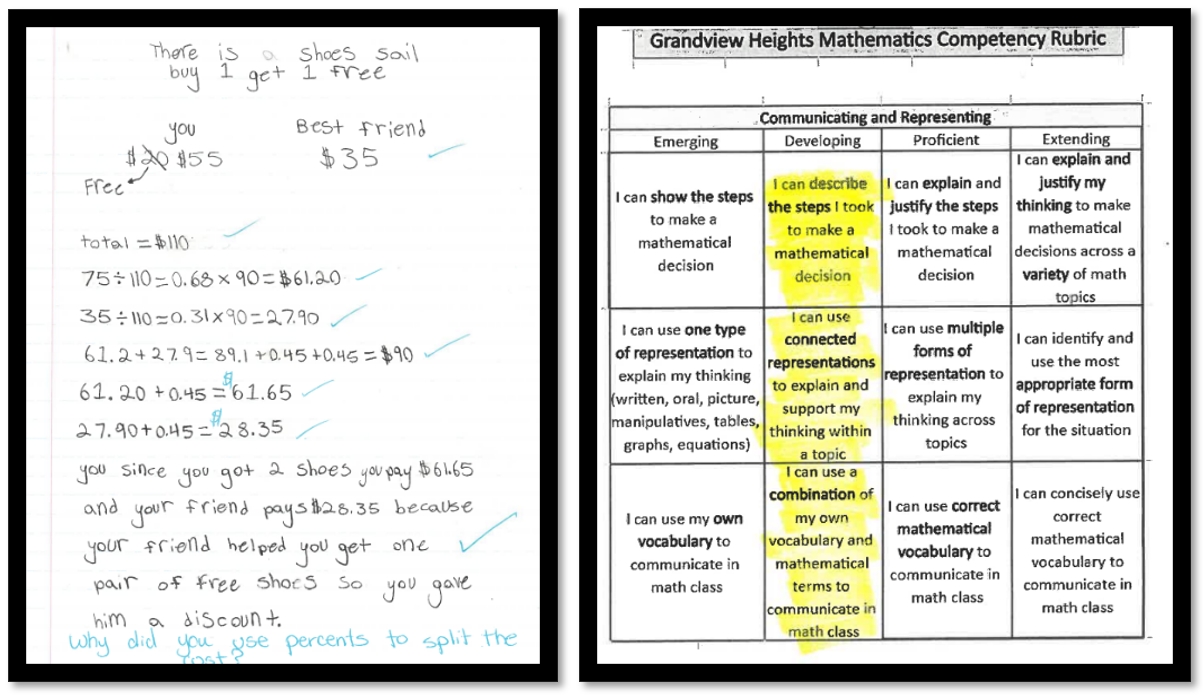 There is a shoes sail
buy 1 get 1 free
you
Best friend
$20 $55
$35
Free
total = $110
75÷110=0.68×90=$61.20
35÷110=0.31×90=27.90
61.2+27.9=89.1+0.45+0.45=$90
61.20+0.45=$61.65
27.90+0.45=$28.35
you since you got 2 shoes you pay $61.65
and your friend pays $28.35 because
your friend helped you get one
pair of free shoes so you gave
him a discount.
why did you use percents to split the
cost?
Grandview Heights Mathematics Competency Rubric
Communicating and Representing
Emerging
Developing
Proficient
Extending
I can show the steps
to make a
mathematical
decision
I can describe
the steps I took
to make a
mathematical
decision
I can explain and
justify the steps
I took to make a
mathematical
decision
I can explain and
justify my
thinking to make
mathematical
decisions across a
variety of math
topics
I can use one type
of representation to
explain my thinking
(written, oral, picture,
manipulatives, tables,
graphs, equations)
I can use
connected
representations
to explain and
support my
thinking within
a topic
I can use multiple
forms of
representation to
explain my
thinking across
topics
I can identify and
use the most
appropriate form
of representation
for the situation
I can use my own
vocabulary to
communicate in
math class
I can use a
combination of
my own
vocabulary and
mathematical
terms to
communicate in
math class
I can use correct
mathematical
vocabulary to
communicate in
math class
I can concisely use
correct
mathematical
vocabulary to
communicate in
math class